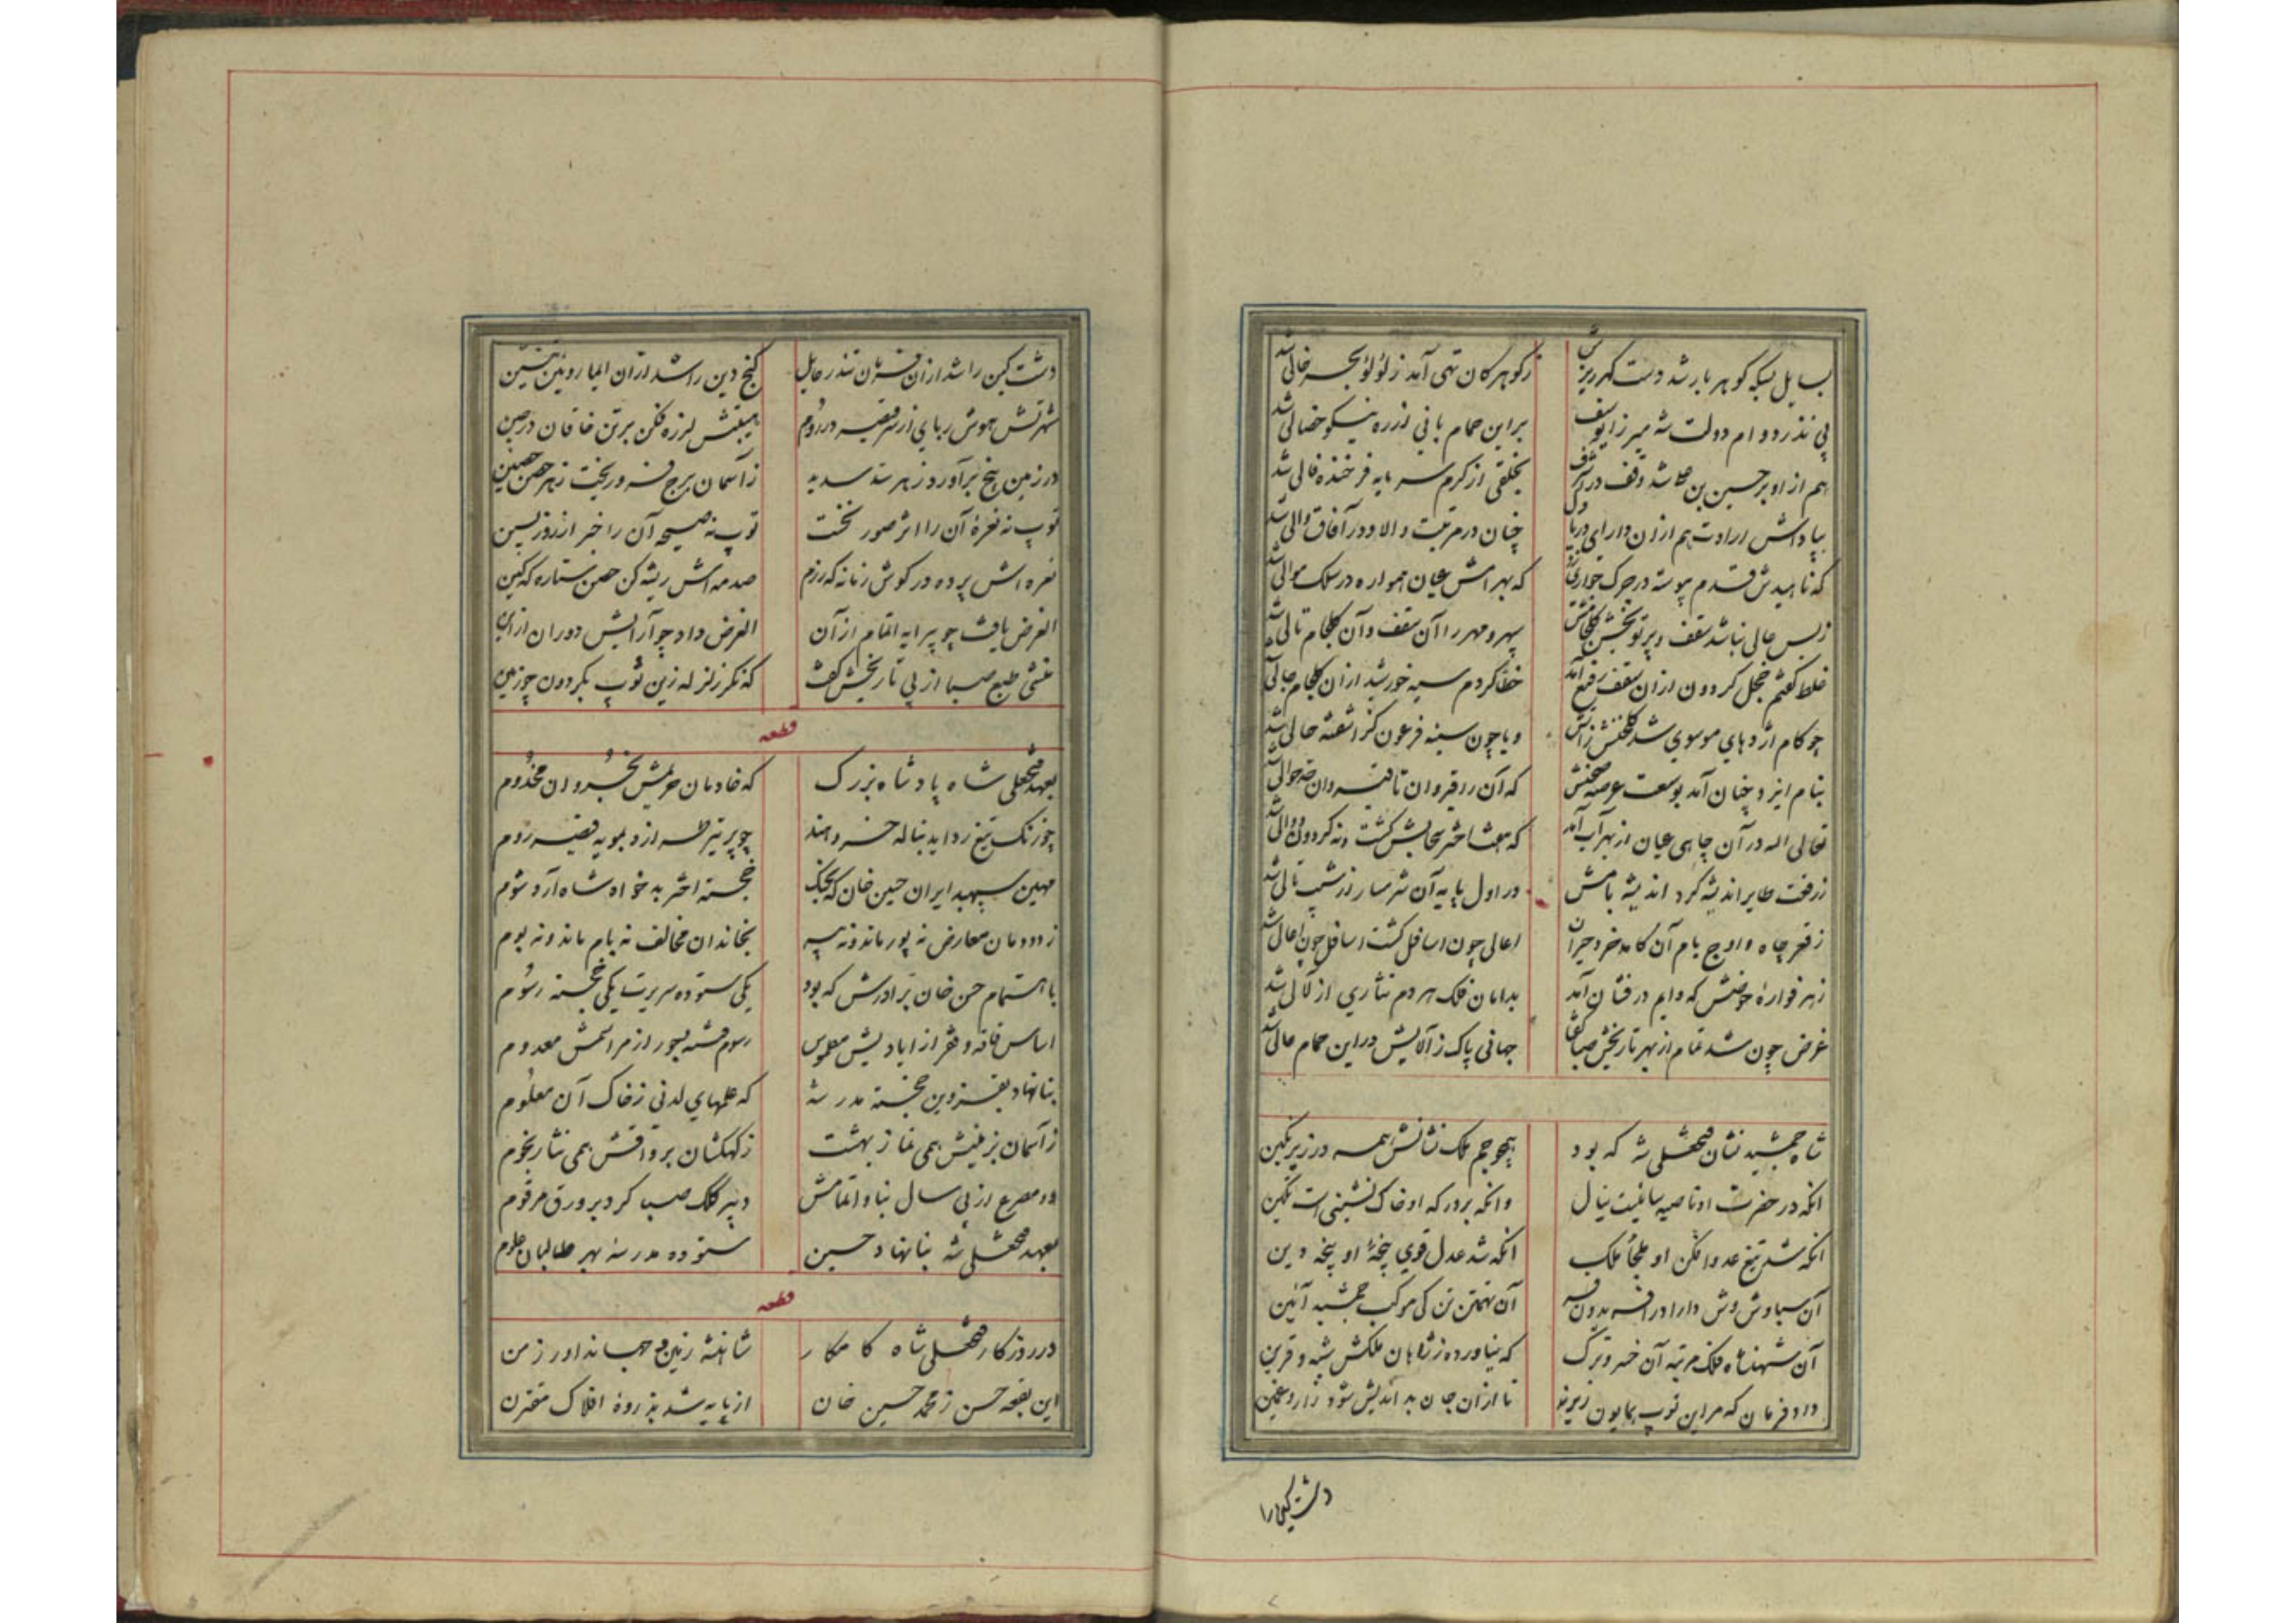 بسایل بسکه کوهر بار شد دست کهرریزش
زکوهر کان تهی آمد ز لؤلؤ بحر خالی شد
پی نذر دوام دولت شه میرزا یوسف
بر این حمام بانی از ره نیکو خصالی شد
هم از او بر حسین بن شد وقف در آخر
بخلقی از کرم سرمایه فرخنده فالی شد
بپاداش ارادت هم از ان دارای دریا دل
چنان در مرتبت والا و در آفاق والی شد
که ناهیدش قدم پیوسته در جرک جواری زد
که بهرامش عیان همواره در سلک موالی شد
ز بس عالی بنا شد سقف و پرتو بخش کلجامش
سپهر و مهر را آن سقف و آن کلجام تالی شد
غلط کفتم خجل کردون از ان سقف رفیع آمد
خطا کردم سیه خورشید از ان کلجام حالی شد
چو کام اژدهای موسوی شد کلخنش زاتش
و یا چون سینه فرعون کز اشفته حالی شد
بنام ایزد چنان آمد بوسعت عرصه صحنش
که آن را قیروان تا قیروان حوالی شد
تعالی اله در آن چاهی عیان از بهر آب آمد
که هفت اختر بجایش کشت و نه کردون دوالی شد
ز رفعت طایر اندیشه کرد اندیشه بامش
در اول پایه آن شرمسار از شب تالی شد
ز قعر چاه و اوج بام آن کامد خرد حیران
اعالی چون اسافل کشت اسافل چون اعالی شد
ز هر فوارهٔ حوضش که دایم در فشان آمد
بدامان فلک هر دم نثاری از لآلی شد
غرض چون شد تمام از بهر تاریخش صبا کفتا
جهانی پاک ز آلایش در این حمام عالی شد
شاه جمشید نشان فتحعلی شه که بود
همچو جم ملک نشانش همه در زیر نکین
انکه در حضرت او ناصیه سائیست ینال
وانکه بر درکه او خاک نشینی است تکین
انکه شد تیغ عدو افکن او ملجأ ملک
انکه شد عدل قوی پنجهٔ او پنجه دین
آن سیاوش وش دارا در افریدون فر
آن تهمتن تن کی مرکب جمشید آئین
آن شهنشاه فلک مرتبه آن خسرو ترک
که نیاورده ز شاهان ملکش شبه و قرین
داد فرمان که مر این توپ همایون ریزند
تا از ان جان بد اندیش شود زار و غمین
دشت کین را
دشت کین را شد از ان تندر حایل
کنج دین را شد از ان الیا روئین تنین
شهرتش هوش ربای از سر قیصر در روم
هیبتش لرزه فکن بر تن خاقان در چین
در زمین بیخ برآورد ز هر سد سدید
ز آسمان برج فرو ریخت ز هر حصن حصین
توپ نه نعرهٔ آن را اثر صور نخست
توپ نه صیحه آن را خبر از روز پسین
نعره اش پرده در کوش زمانه که رزم
صدمه اش ریشه کن حصن ستاره که کین
الغرض یافت چو پیرایه اتمام از آن
الغرض داد چو آرایش دوران از این
منشی طبع صبا از پی تاریخش کفت
که نکر زلزله زین توپ بکردون چو زمین
قطعه
بعهد فتحعلی شاه پادشاه بزرک
که خادمان حریمش بخسروان مخدوم
چو زنک تیغ زداید بناله خسرو هند
چو پر تیر طرازد بمویه قیصر روم
مهین سپهبد ایران حسین خان که بجنک
خجسته اختر بدخواه شاه آرد شوم
ز دودمان معارض نه پور ماند و نه
بخاندان مخالف نه بام ماند و نه بوم
باهتمام حسن خان برادرش که بود
یکی ستوده سریرت یکی خجسته رسوم
اساس فاقه و فقر از ایادیش مطموس
رسوم فتنه و جور از مراسمش معدوم
بنا نهاد بقزوین خجسته مدرسهٔ
که علمهای لدنی ز خاک آن معلوم
ز آسمان بزمینش همی نماز بهشت
ز کهکشان برواقش همی نثار نجوم
دو مصرع از پی سال بنا و اتمامش
دبیر کلک صبا کرد بر ورق مرقوم
بعهد فتحعلی شه بنا نهاد حسین
ستوده مدرسهٔ بهر طالبان علوم
قطعه
در روزکار فتحعلی شاه کامکار
شاهنشه زمین و جهاندار زمن
این بقعه حسن ز محمد حسین خان
از پایه شد بذروهٔ افلاک مقترن